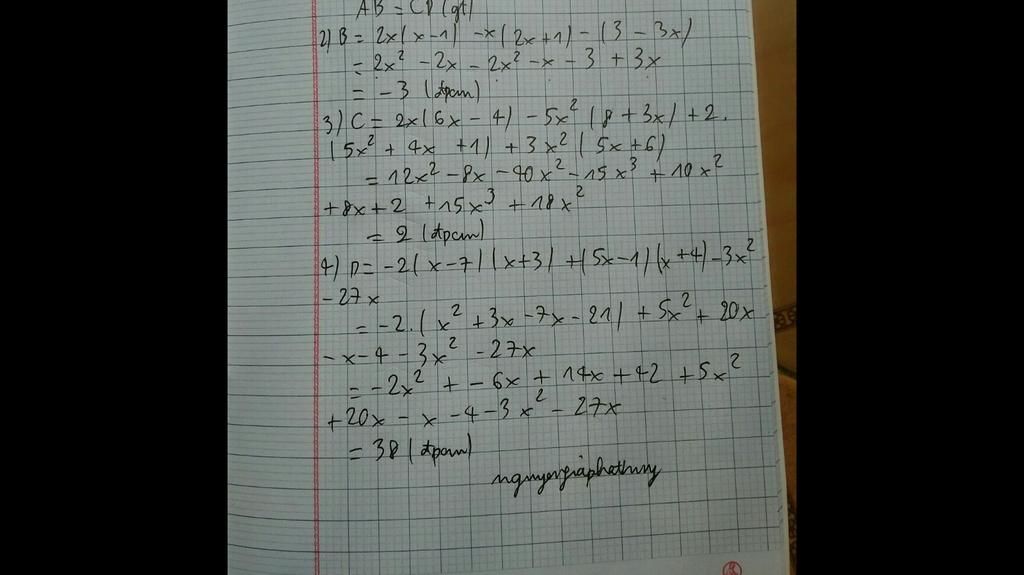 AB = CD (gt)
2) B = 2x(x-1) -x(2x+1) - (3 - 3x)
= 2x² - 2x - 2x² - x - 3 + 3x
= -3 (đpcm)
3) C = 2x(6x - 4) - 5x² (8 + 3x) + 2.
(5x² + 4x + 1) + 3x² (5x+6)
= 12x² - 8x - 40x² - 15x³ + 10x²
+8x+2 +15x³ + 18x²
= 2 (đpcm)
4) D = -2(x-7)(x+3) + (5x-1)(x+4) - 3x²
- 27x
= -2.(x² + 3x - 7x - 21) + 5x² + 20x
- x - 4 - 3x² - 27x
= -2x² + - 6x + 14x + 42 + 5x²
+20x - x - 4 - 3x² - 27x
= 38 (đpcm)